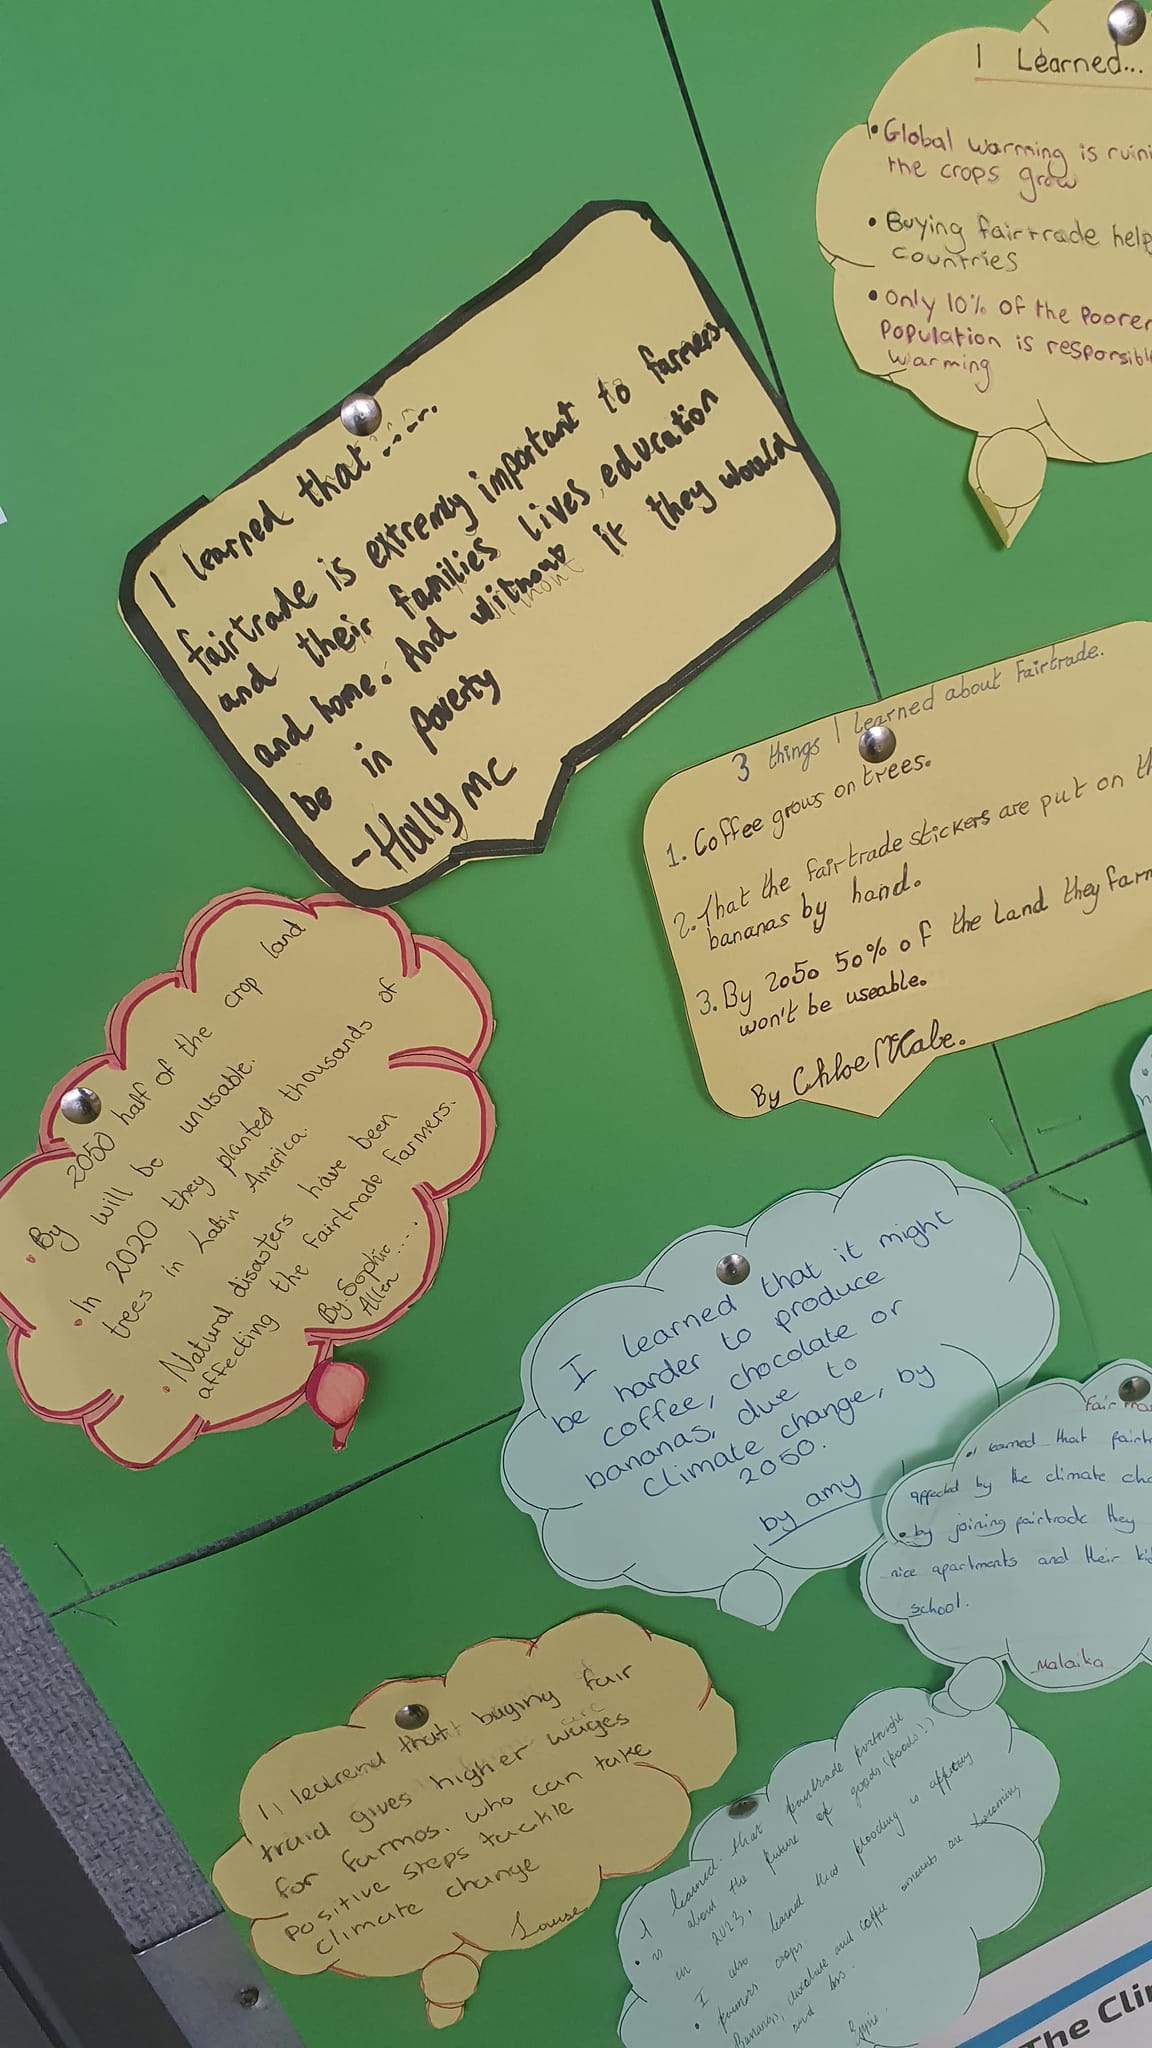 I Learned...
• Global warming is
the crops grow
• Buying fairtrade
countries
• Only 10% of the
population is
warming
I learned that......
fairtrade is extremly important to farmers
and their families lives, education
and home. And without it they would
be in poverty
- Holly MC
3 things I learned about Fairtrade.
1. Coffee grows on trees.
2. That the fairtrade stickers are put on
bananas by hand.
3. By 2050 50% of the land they farm
won't be useable.
By Chloe McCabe.
• By 2050 half of the crop land
will be unusable.
• In 2020 they planted thousands of
trees in Latin America.
• Natural disasters have been
affecting the fairtrade farmers.
By: Sophie....
Allen
I learned that it might
be harder to produce
coffee, chocolate or
bananas, due to
Climate change, by
2050.
by amy
Fair
• I learned that
affected by the climate
• by joining fairtrade they
nice apartments and their
school.
Malaika
I learend that buying fair
traid gives higher wages
for farmos. who can take
positive steps tackle
climate change
Louise
• I learned that fairtrade fortnight
is about the future of goods (foods!!)
in 2023.
• I also learned that flooding is affecting
farmers crops.
• Bananas, chocolate and coffee amounts are becoming
and less.
The